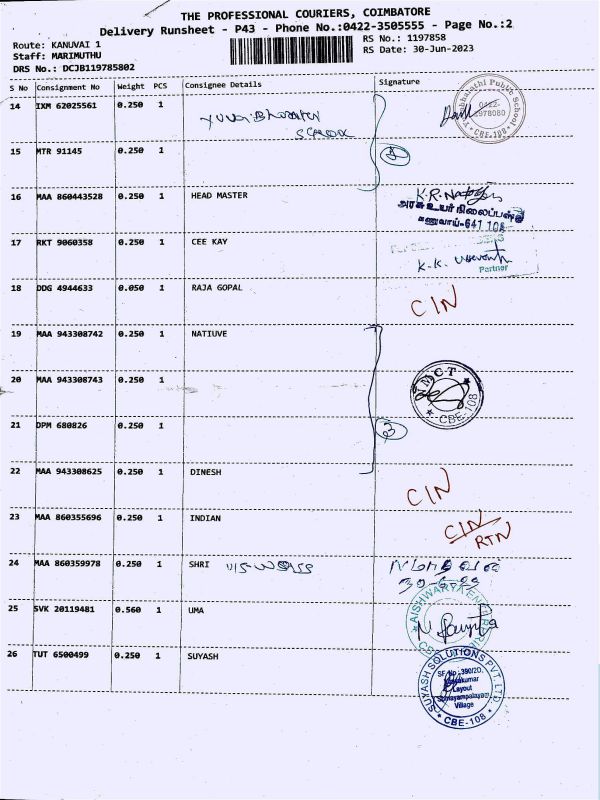 THE PROFESSIONAL COURIERS, COIMBATORE
Delivery Runsheet - P43 - Phone No.:0422-3505555 - Page No.:2
Route: KANUVAI 1
Staff: MARIMUTHU
DRS No.: DCJB119785802
RS No.: 1197858
RS Date: 30-Jun-2023
S No Consignment No Weight PCS Consignee Details Signature
14 IXM 62025561 0.250 1
Yuva Bharathi
School
Public School
0422-
2978080
CBE-108
15 MTR 91145 0.250 1
2
16 MAA 860443528 0.250 1 HEAD MASTER
அரசு உயர்நிலைப்பள்ளி
கணுவாய்-641 108
17 RKT 9060358 0.250 1 CEE KAY
Partner
18 DDG 4944633 0.050 1 RAJA GOPAL CIN
19 MAA 943308742 0.250 1 NATIUVE
20 MAA 943308743 0.250 1
NMCT
CBE-108
21 DPM 680826 0.250 1
3
22 MAA 943308625 0.250 1 DINESH CIN
23 MAA 860355696 0.250 1 INDIAN CIN
RTN
24 MAA 860359978 0.250 1 SHRI
30-6-23
25 SVK 20119481 0.560 1 UMA
AISHWARYA
26 TUT 6500499 0.250 1 SUYASH
SUYASH SOLUTIONS PVT. LTD.
SF.No.:390/2D,
Layout
Somayampalayam
Village
CBE-108